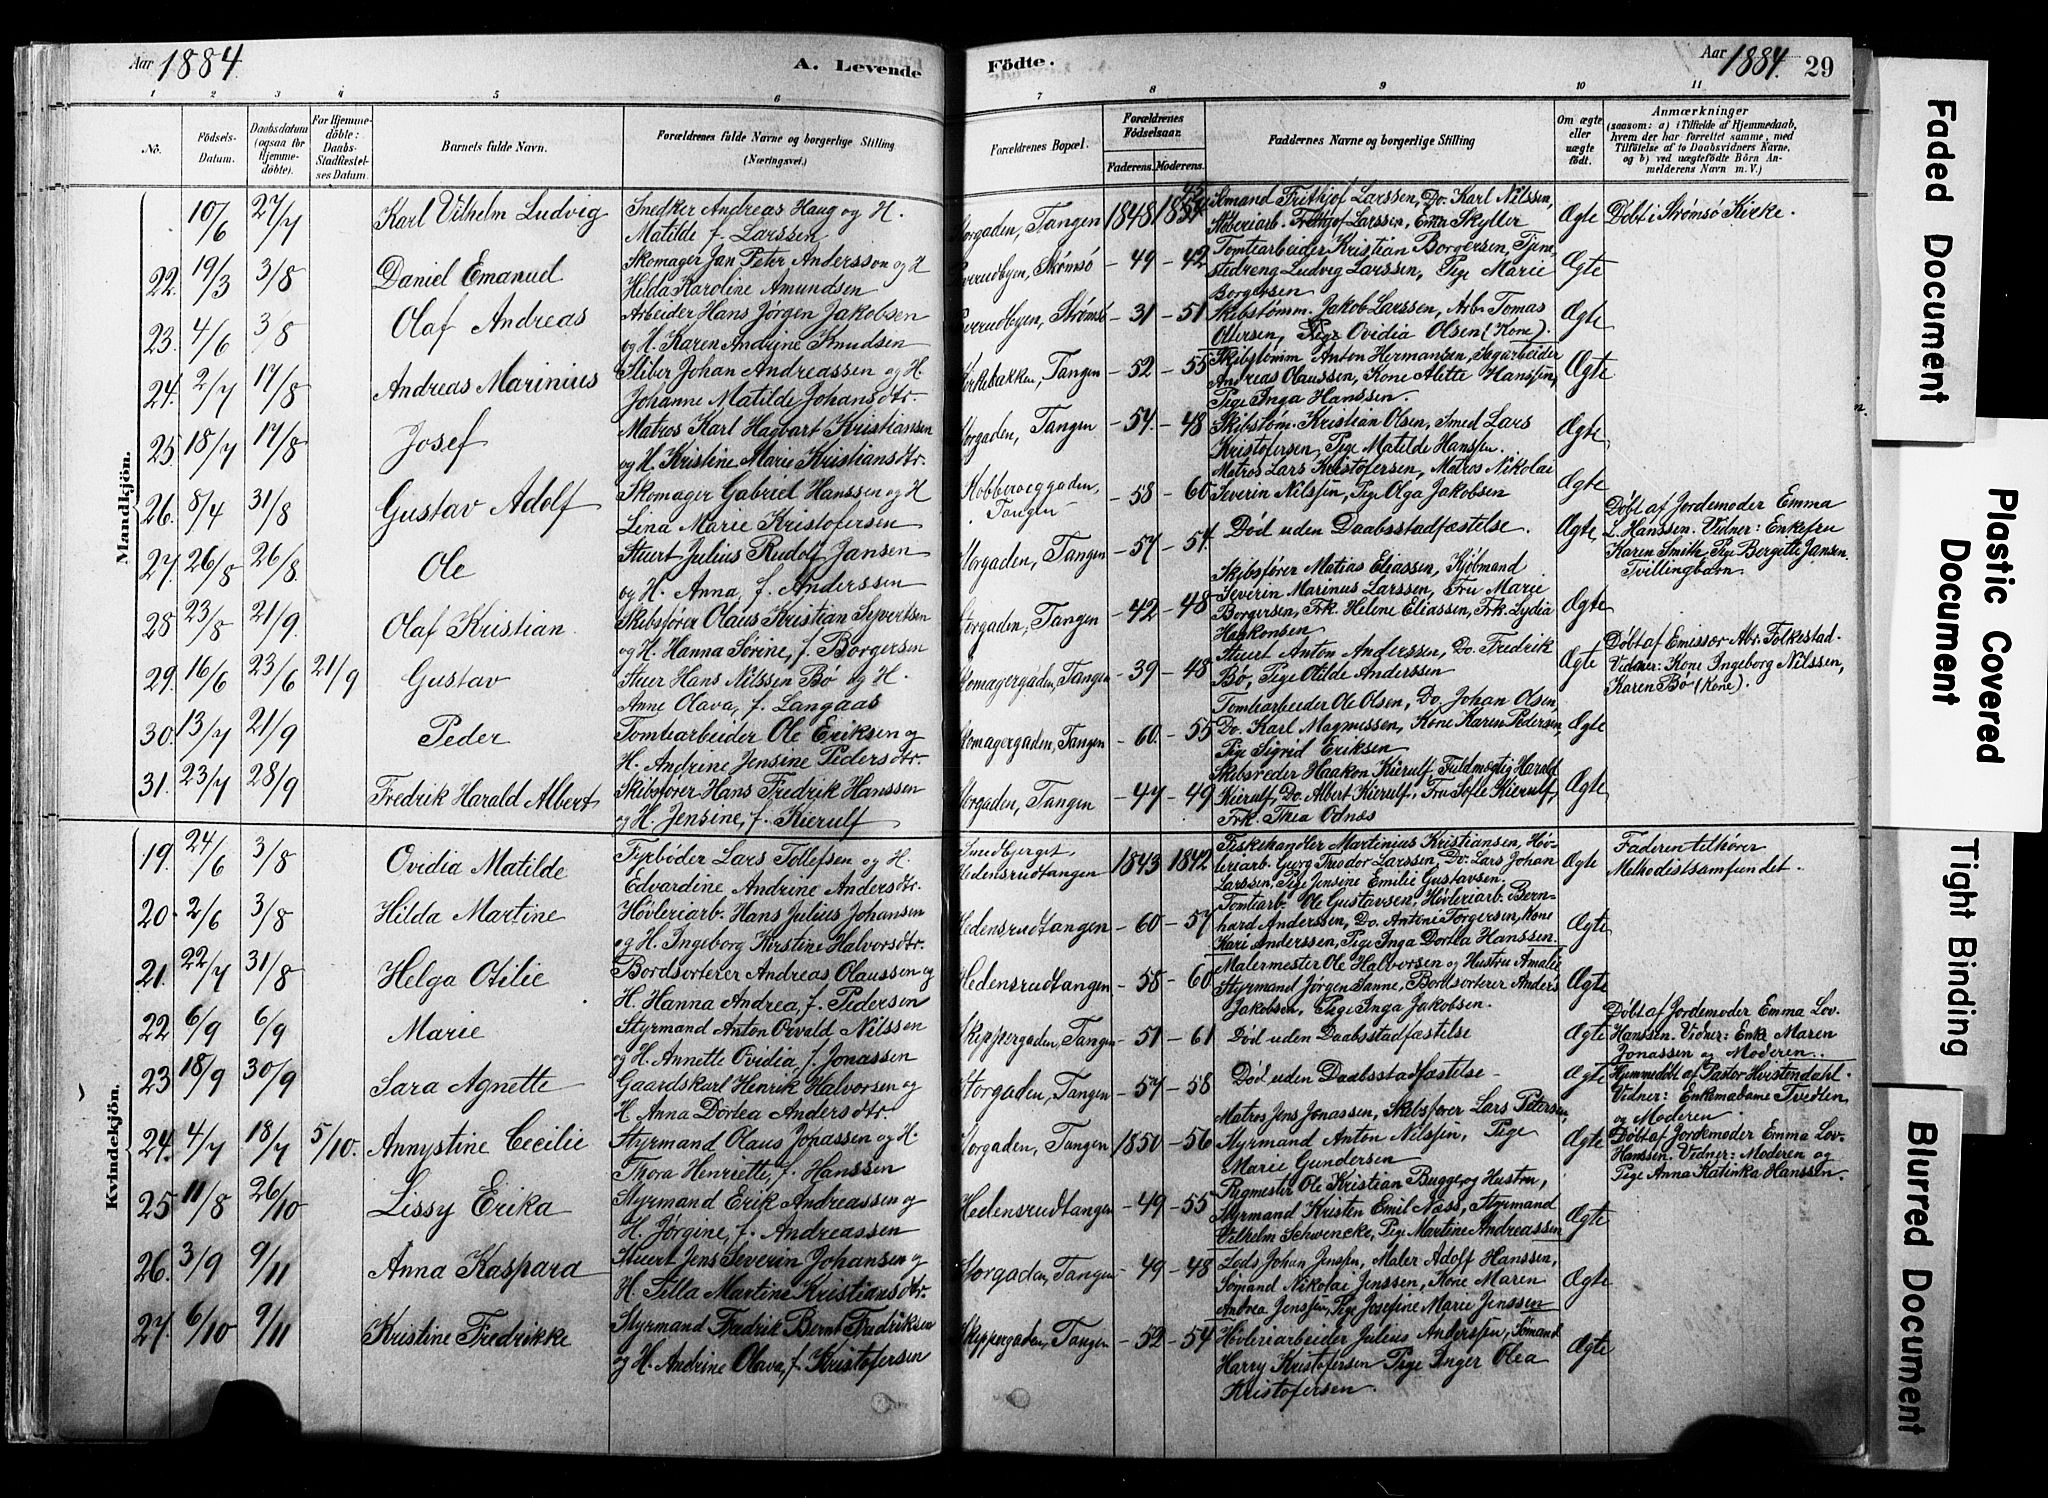 Aar 1884
A. Levende
Födte.
Aar 1884.
29
1 2 3 4 5 6 7 8 9 10 11
No.
Födsels-
Datum.
Daabsdatum
(ogsaa for
Hjemme-
döbte).
For Hjemme-
döbte:
Daabs-
Stadfæstel-
ses Datum.
Barnets fulde Navn.
Forældrenes fulde Navne og borgerlige Stilling
(Næringsvei.)
Forældrenes Bopæl.
Forældrenes
Födselsaar.
Faderens. Moderens.
Faddernes Navne og borgerlige Stilling
Om ægte
eller
uægte
födt.
Anmærkninger
(saasom: a) i Tilfælde af Hjemmedaab,
hvem der har forrettet samme, med
Tilföielse af to Daabsvidners Navne,
og b) ved uægtefödte Börn An-
melderens Navn m. V.)
Mandkjön.
10/6 27/7 Karl Vilhelm Ludvig
Snedker Andreas Haug og H.
Matilde f. Larssen
Storgaden, Tangen 1848
Sømand Frithjof Larssen, Do. Karl Nilssen,
Larssen, Ema Skyller
Ægte
Døbt i Strømsø Kirke.
22. 19/3 3/8 Daniel Emanuel
Skomager Jan Peter Andersson og H
Hilda Karoline Amundsen
Sverudbyen, Strømsø - 49 - 42
Tomtearbeider Kristian Borgersen, Tjene-
stedreng Ludvig Larssen, Pige Marie
Borgersen
Ægte
23. 4/6 3/8 Olaf Andreas
Arbeider Hans Jørgen Jakobsen
og H. Karen Andrine Knudsen
Sverudbyen, Strømsø - 31 - 51
Skibstømm. Jakob Larssen, Arb. Tomas
Ottersen, Pige Ovidia Olsen (Kone).
Ægte
24. 2/7 17/8 Andreas Marinius
Støber Johan Andreassen og H.
Johanne Matilde Johansdtr.
Kirkebakken, Tangen - 52 - 55
Skibstømm Anton Hermansen, Sagarbeider
Andreas Olaussen, Kone Alette Hanssen,
Pige Inga Hanssen.
Ægte
25. 18/7 17/8 Josef
Matros Karl Hagbart Kristiansen
og H. Kristine Marie Kristiansdtr.
Storgaden, Tangen - 57. - 48
Skibstøm. Kristian Olsen, Smed Lars
Kristofersen, Pige Matilde Hanssen.
Ægte
26. 8/4 31/8 Gustav Adolf
Skomager Gabriel Hanssen og H
Lina Marie Kristofersen
Kobberveggaden,
Tangen - 58 - 60
Matros Lars Kristofersen, Matros Nikolai
Severin Nilssen, Pige Olga Jakobsen
Ægte
27. 26/8 26/8. Ole
Stuert Julius Rudolf Jansen
og H. Anna, f. Anderssen
Storgaden, Tangen - 57 - 57.
Død uden Daabsstadfæstelse.
Ægte
Døbt af Jordemoder Emma
L. Hanssen. Vidner: Enkefru
Karen Smith, Pige Bergitte Jansen.
Tvillingbarn.
28 23/8 21/9. Olaf Kristian.
Skibsfører Olaus Kristian Syvertsen
og H. Hanna Sørine, f. Borgersen
Storgaden, Tangen - 42 - 48
Skibsfører Matias Eliassen, Kjøbmand
Severin Marinus Larssen, Fru Marie
Borgersen, Frk. Helene Eliassen, Frk. Lydia
Haakonsen
Ægte
29. 16/6 23/6 21/9 Gustav
Stuer Hans Nilssen Bø og H.
Anne Olava, f. Langaas
Skomagergaden, Tangen - 39 - 48
Stuert Anton Anderssen, Do. Fredrik
Bø, Pige Otilde Anderssen
Ægte
Døbt af Emissær Abr. Folkestad.
Vidner: Kone Ingeborg Nilssen,
Karen Bø (Kone).
30. 13/7 21/9 Peder
Tomtearbeider Ole Eriksen og
H. Andrine Jensine Pedersdtr.
Skomagergaden, Tangen - 60. - 55
Tomtearbeider Ole Olsen, Do. Johan Olsen,
Do. Karl Magnussen, Kone Karen Pedersen,
Pige Sigrid Eriksen
Ægte
31. 23/7 28/9 Fredrik Harald Albert
Skibsfører Hans Fredrik Hanssen
og H. Jensine, f. Kierulf
Storgaden, Tangen - 47 - 49
Skibsreder Haakon Kierulf, Fuldmægtig Harald
Kierulf, Do. Albert Kierulf, Fru Sofie Kierulf,
Frk. Thea Odnæs
Ægte
Kvindekjön.
19. 24/6 3/8 Ovidia Matilde
Fyrbøder Lars Tollefsen og H.
Edvardine Andrine Andersdtr.
Smedbjerget,
Hedensrudtangen 1843 1842
Fiskehandler Martinius Kristiansen, Høv-
leriarb. Georg Theodor Larssen, Do. Lars Johan
Larssen, Pige Jensine Emilie Gustavsen.
Ægte
Faderen tilhører
Methodistsamfundet.
20. 2/6 3/8 Hilda Martine
Høvleriarb. Hans Julius Johansen
og H. Ingeborg Kirstine Halvorsdtr.
Hedensrudtangen - 60 - 57
Tomtearb. Ole Gustavsen, Høvleriarb. Bern-
hard Anderssen, Do. Antoni Torgersen, Kone
Kari Anderssen, Pige Inga Dortea Hanssen
Ægte
21. 22/7 31/8 Helga Otilie
Bordsorterer Andreas Olaussen og
H. Hanna Andrea, f. Pedersen
Hedensrudtangen - 58 - 60
Malermester Ole Halvorsen og Hustru Amalie
Styrmand Jørgen Sanne, Bordsorterer Anders
Jakobsen, Pige Inga Jakobsen.
Ægte
22 6/9 6/9 Marie
Styrmand Anton Osvald Nilssen
og H. Annette Ovidia, f. Jonassen
Skippergaden, Tangen - 51 - 61
Død uden Daabsstadfæstelse
Ægte
Døbt af Jordemoder Emma Lov.
Hanssen. Vidner: Enke Maren
Jonassen og Moderen.
23 18/9 30/9 Sara Agnette
Gaardskarl Henrik Halvorsen og
H. Anna Dortea Andersdtr.
Storgaden, Tangen - 57 - 58
Død uden Daabsstadfæstelse -
Ægte
Hjemmedøbt af Pastor Hvistendahl.
Vidner: Enkemadame Tvedten
og Moderen
24. 4/7 18/7 5/10. Annystine Cecilie
Styrmand Olaus Jonassen og H.
Thora Henriette, f. Hanssen
Storgaden, Tangen 1850 - 56
Matros Jens Jonassen, Skibsfører Lars Petersen,
Styrmand Anton Nilssen, Pige
Marie Gundersen
Ægte
Døbt af Jordemoder Emma Lov-
Hanssen. Vidner: Moderen og
Pige Anna Katinka Hanssen.
25 11/8 26/10 Lissy Erika
Styrmand Erik Andreassen og
H. Jørgine, f. Andreassen
Hedensrudtangen - 49 - 55
Rygmester Ole Kristian Bugge og Hustru,
Styrmand Kristen Emil Næss, Styrmand
Vilhelm Schwencke, Pige Martine Andreassen
Ægte
26. 3/9 9/11 Anna Kaspara
Stuert Jens Severin Johansen og
H. Tilla Martine Kristiansdtr.
Storgaden, Tangen - 49 - 48
Lods Johan Jenssen, Maler Adolf Hanssen,
Sømand Nikolai Jenssen, Kone Maren
Andrea Jenssen, Pige Josefine Marie Jenssen
Ægte
27. 6/10 9/11 Kristine Fredrikke
Styrmand Fredrik Bernt Fredriksen
og H. Andrine Olava, f. Kristofersen
Skippergaden, Tangen - 52 - 54
Høvleriarbeider Julius Anderssen, Sømand
Harry Kristofersen Pige Inger Olea
Kristofersen.
Ægte
Faded Document
Plastic Covered
Document
Tight Binding
Blurred Document